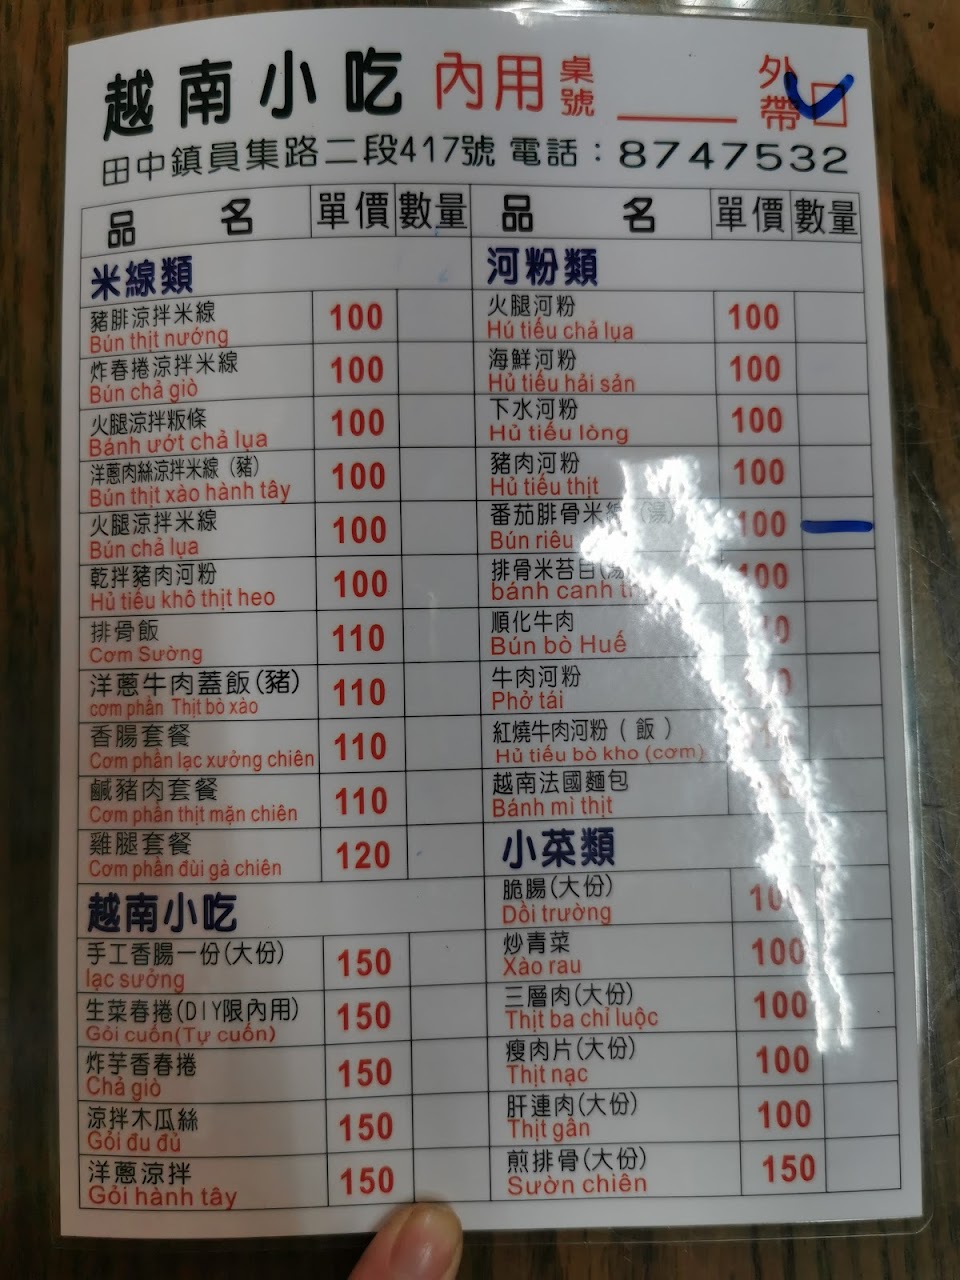 越南小吃 內用 桌號 外帶
田中鎮員集路二段417號 電話：8747532
品名 單價 數量 品名 單價 數量
米線類
豬腓涼拌米線 100
Bún thịt nướng
炸春捲涼拌米線 100
Bún chả giò
火腿涼拌粄條 100
Bánh ướt chả lụa
洋蔥肉絲涼拌米線（豬） 100
Bún thịt xào hành tây
火腿涼拌米線 100
Bún chả lụa
乾拌豬肉河粉 100
Hủ tiếu khô thịt heo
排骨飯 110
Cơm Sường
洋蔥牛肉蓋飯(豬) 110
cơm phần Thịt bò xào
香腸套餐 110
Cơm phần lạc xưởng chiên
鹹豬肉套餐 110
Cơm phần thịt mặn chiên
雞腿套餐 120
Cơm phần đùi gà chiên
越南小吃
手工香腸一份(大份) 150
lạc sưởng
生菜春捲(DIY限內用) 150
Gỏi cuốn(Tự cuốn)
炸芋香春捲 150
Chả giò
涼拌木瓜絲 150
Gỏi đu đủ
洋蔥涼拌 150
Gỏi hành tây
河粉類
火腿河粉 100
Hú tiếu chả lụa
海鮮河粉 100
Hủ tiếu hải sản
下水河粉 100
Hủ tiếu lòng
豬肉河粉 100
Hủ tiếu thịt
番茄腓骨米線（湯） 100
Bún riêu
排骨米苔目(湯 100
bánh canh
順化牛肉
Bún bò Huế
牛肉河粉
Phở tái
紅燒牛肉河粉（飯）
Hủ tiếu bò kho (cơm)
越南法國麵包
Bánh mì thịt
小菜類
脆腸(大份)
Dồi trường
炒青菜 100
Xào rau
三層肉(大份) 100
Thịt ba chỉ luộc
瘦肉片(大份) 100
Thịt nạc
肝連肉(大份) 100
Thịt gân
煎排骨(大份) 150
Sườn chiên